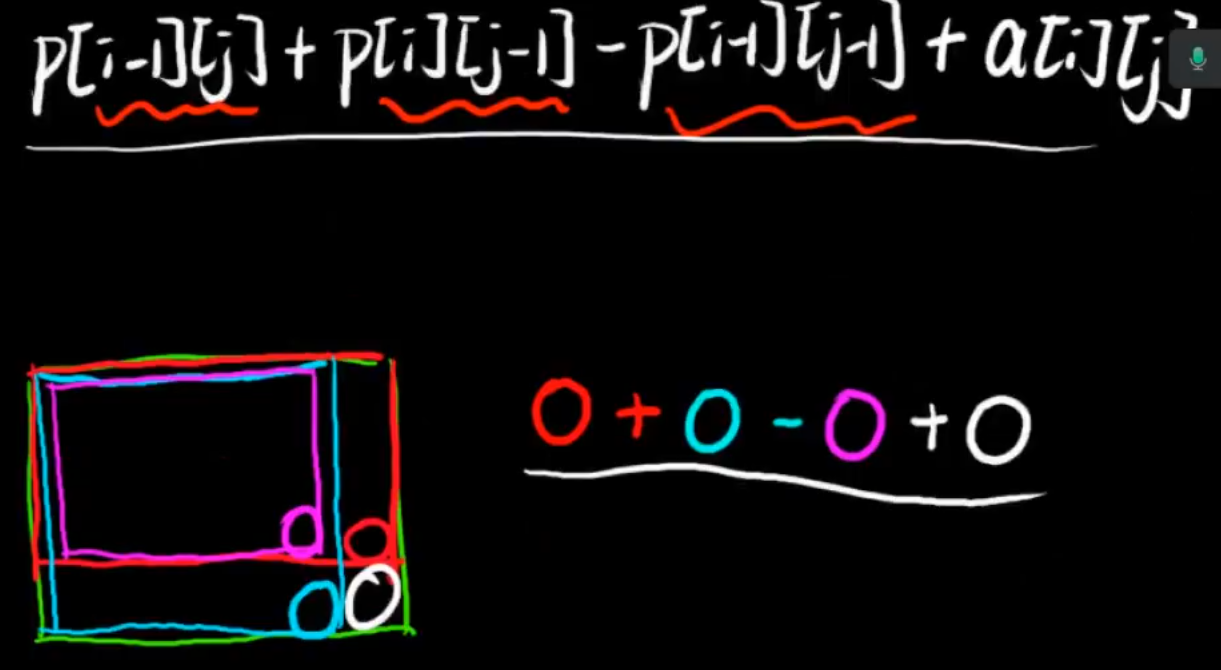 p[i-1][j] + p[i][j-1] - p[i-1][j-1] + a[i][j]
O + O - O + O